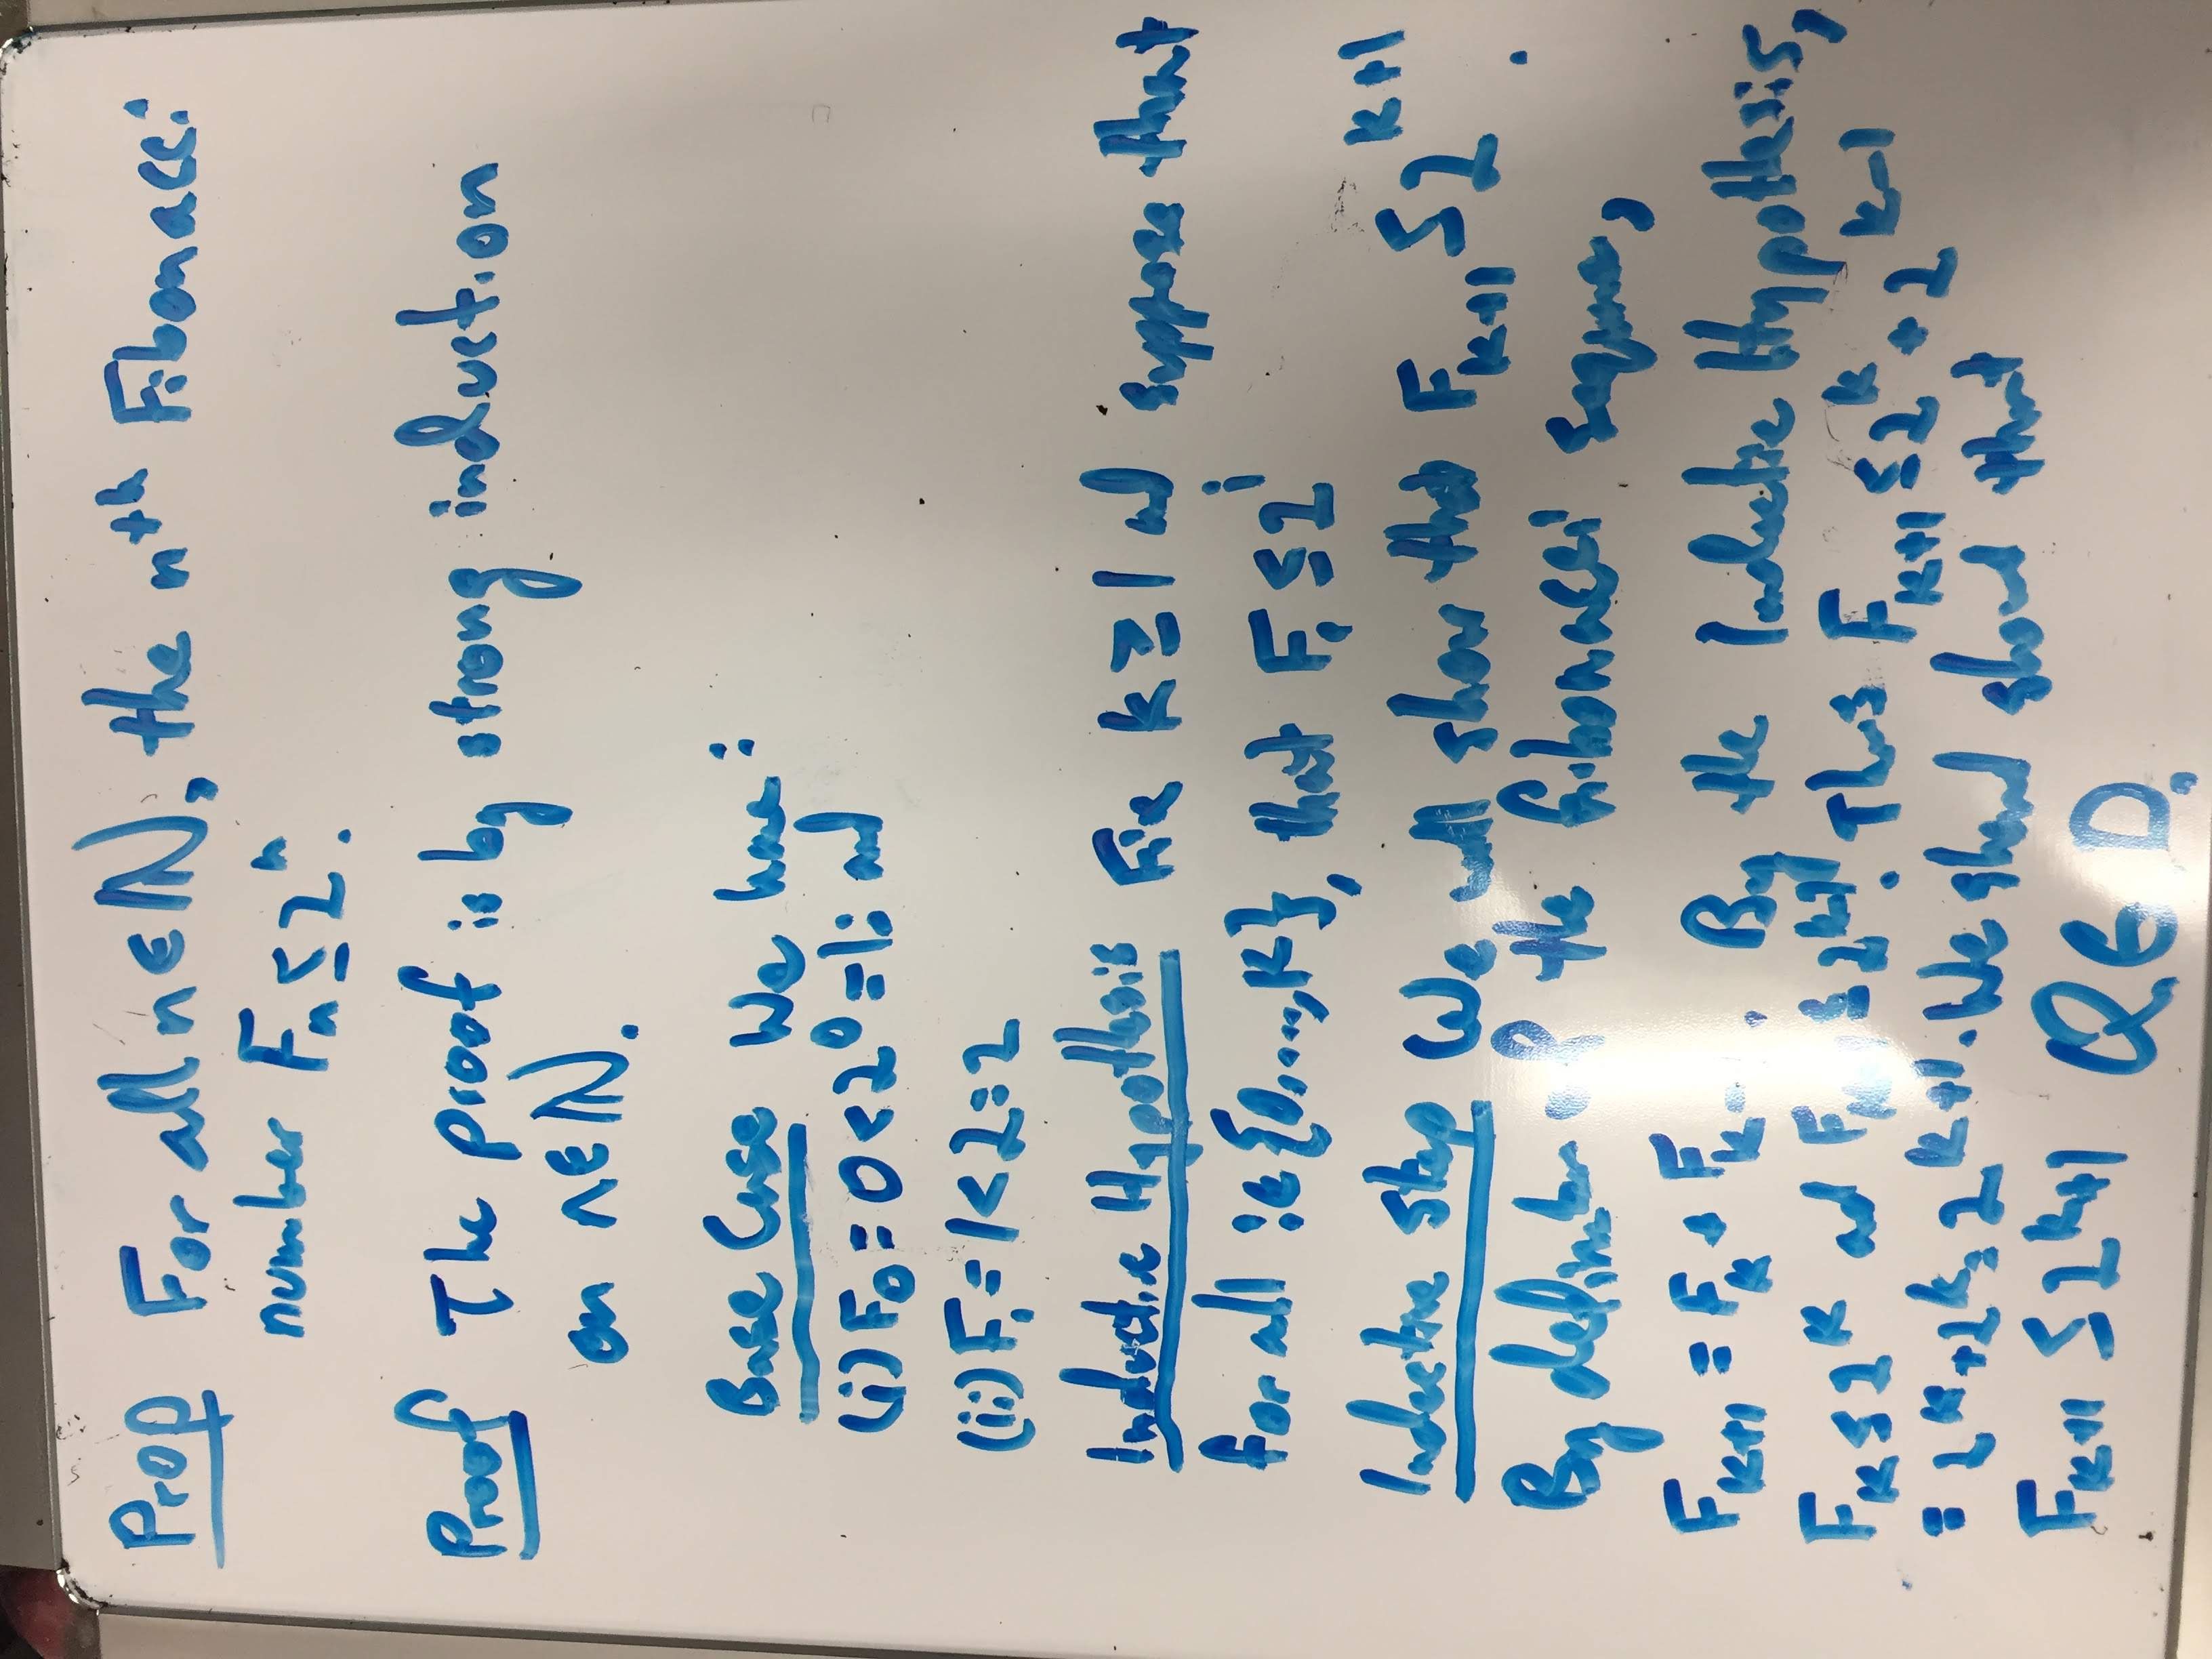 Prop For all n∈ℕ, the nᵗʰ Fibonacci
number Fₙ ≤ 2ⁿ.
Proof The proof is by strong induction
on n∈ℕ.
Base Case We have:
(i) F₀ = 0 < 2⁰ = 1; and
(ii) F₁ = 1 < 2 = 2
Inductive Hypothesis Fix k ≥ 1 and suppose that
for all i∈{0,...,k}, that Fᵢ ≤ 2ⁱ
Inductive Step We will show that Fₖ₊₁ ≤ 2ᵏ⁺¹.
By definition of the fibonacci sequence,
Fₖ₊₁ = Fₖ + Fₖ₋₁. By the Inductive Hypothesis,
Fₖ ≤ 2ᵏ and Fₖ₋₁ ≤ 2ᵏ⁻¹. Thus Fₖ₊₁ ≤ 2ᵏ + 2ᵏ⁻¹
= 2ᵏ + 2ᵏ = 2ᵏ⁺¹. We showed that
Fₖ₊₁ ≤ 2ᵏ⁺¹ QED.